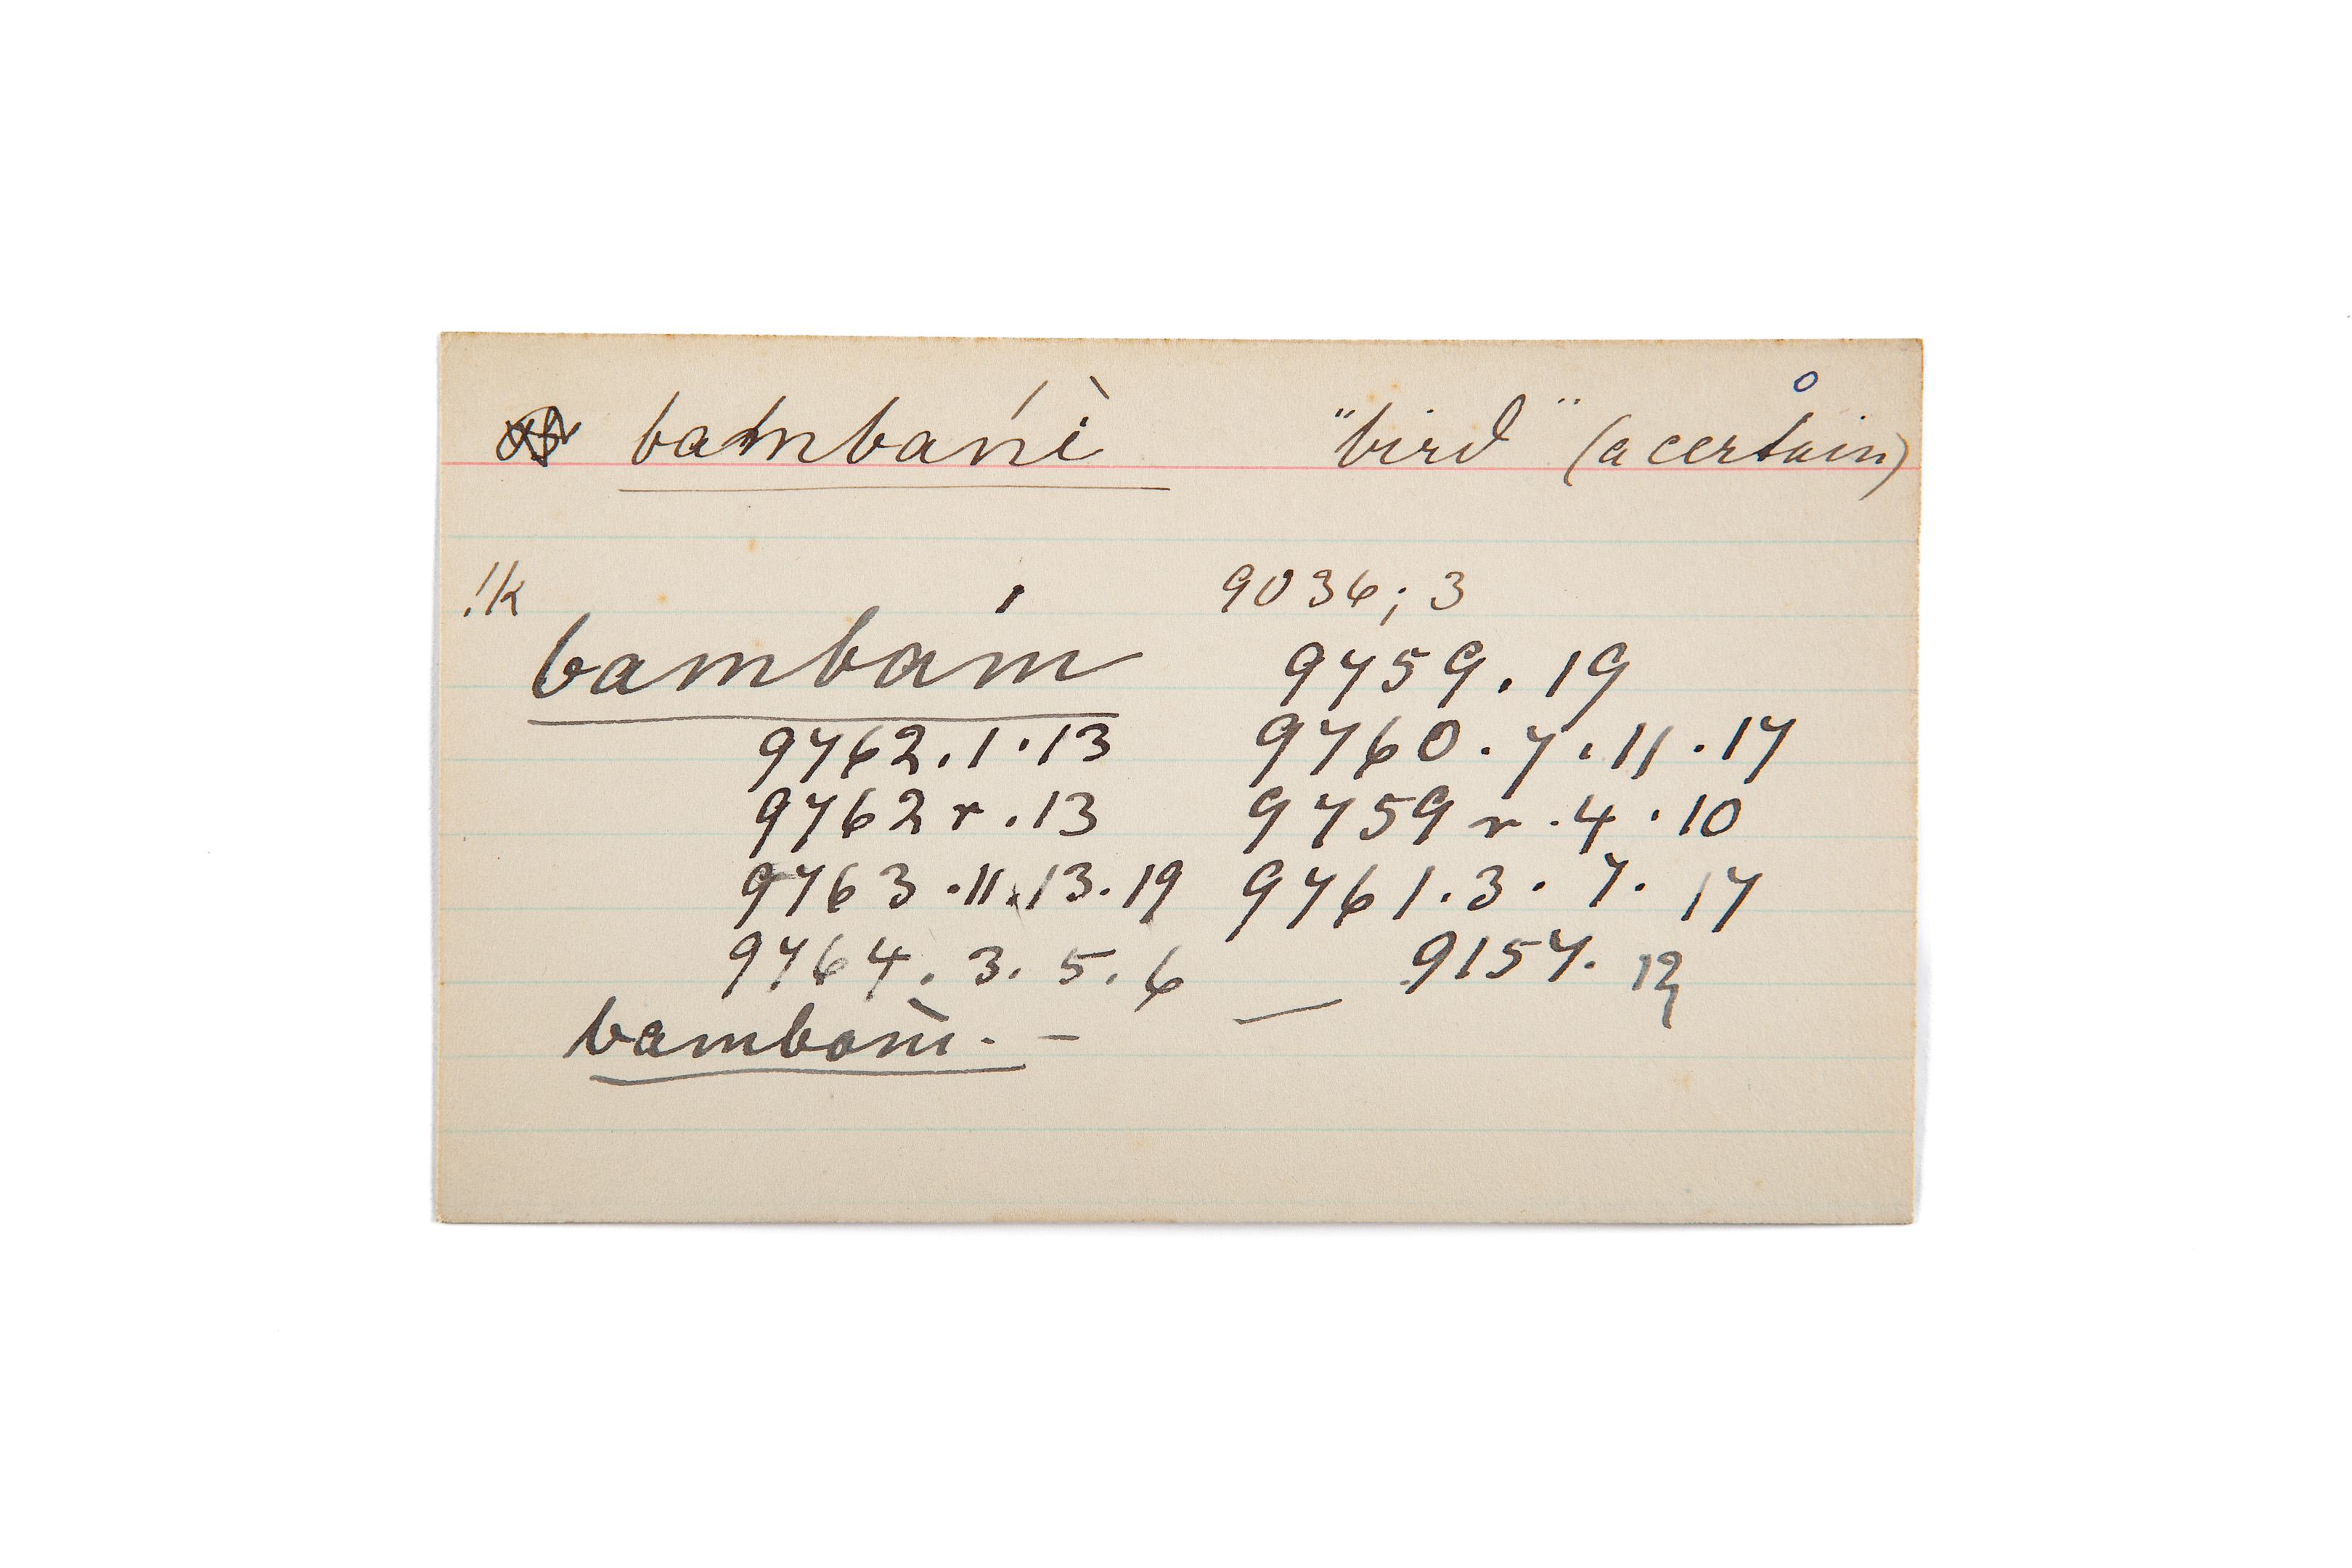 bambańì "bird" (a certain)
!k 9036; 3
bambám 9759. 19
9762. 1. 13 9760. 7. 11. 17
9762 r. 13 9759 r. 4. 10
9763. 11. 13. 19 9761. 3. 7. 17
9764. 3. 5. 6 — 9157.
bambanì. —